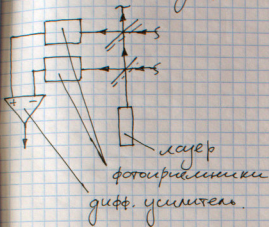 + -
лазер
фотоприемники
дифф. усилитель.